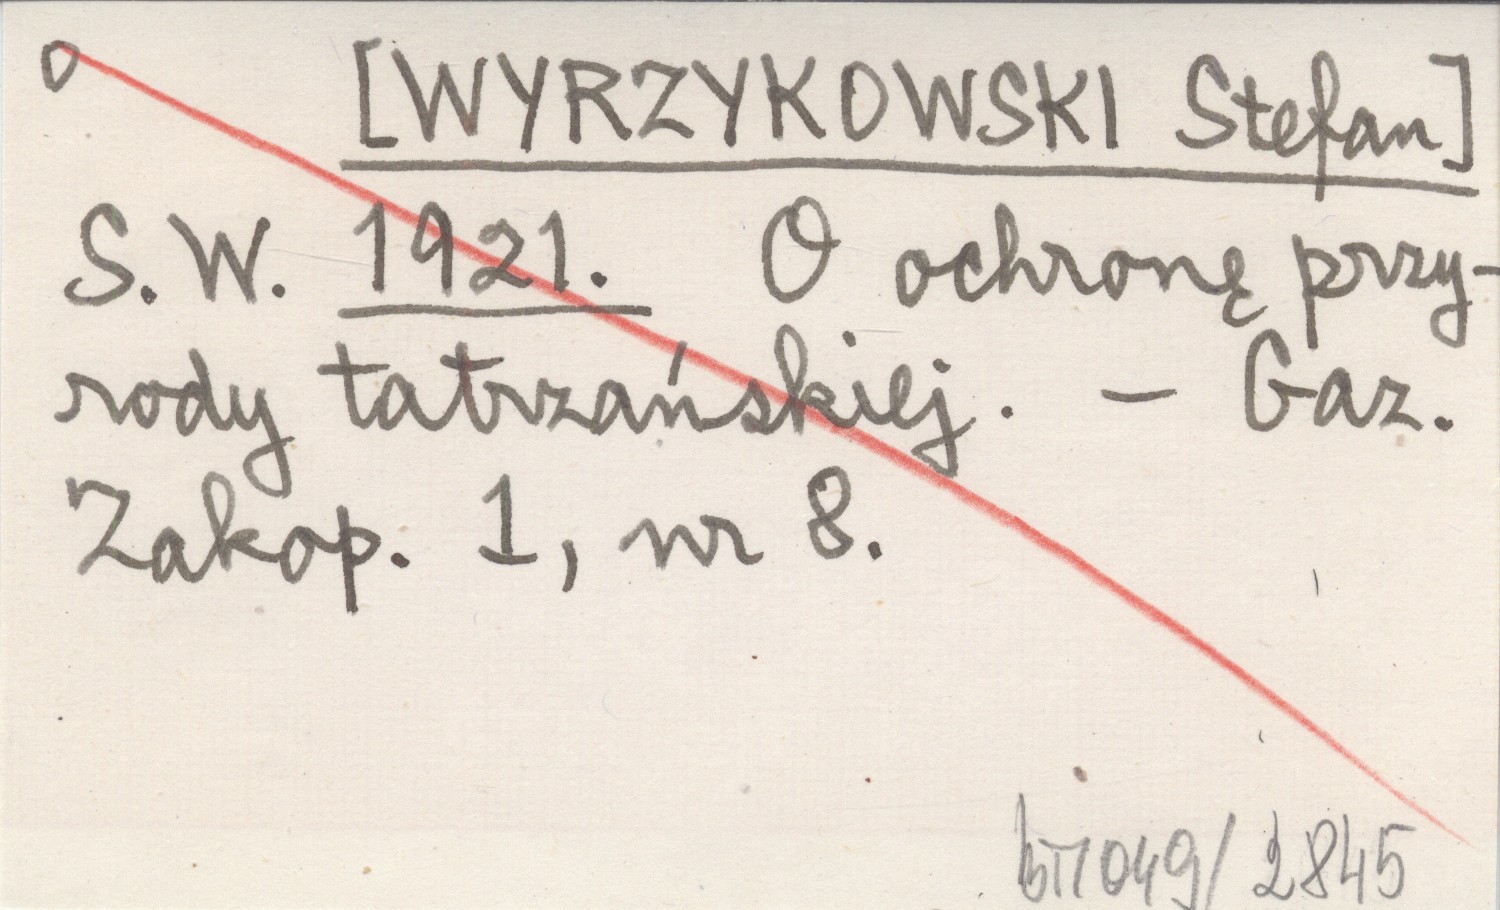 O [WYRZYKOWSKI Stefan]
S.W. 1921. O ochronę przy-
rody tatrzańskiej. - Gaz.
Zakop. 1, nr 8.
049/2845